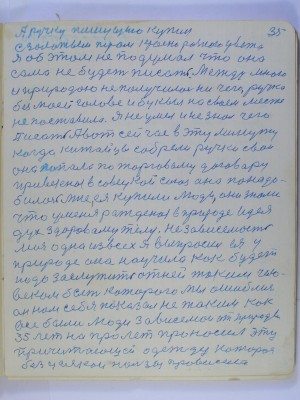 А ручку пишущую купил 35
с золотым пером красно разного цвета
Я об этом не подумал что она
сама не будет писать. Между мною
и природою не получилось ни чего, ража
бы моей голове и буквы на своем месте
не поставила. Я не умел и не знал чего
писать А вот сейчас в эту минуту
когда китайцы собрали ручки свои
она попала по торговому договору
привезена в советской союз она понадо-
билась мне я купил Люди, они знали
что у меня раждена в природе идея
дух здоровому телу. Независимость
моя одна из всех я выпросил ея у
природе она научила как будет
надо заслужить от ней таким чело-
веком быть которого мы ошибля
он нам себя показал не таким как
все были люди зависимые от природы
35 лет на пролет проносил эту
причитающую одежду которая
без всякой пользы провисела